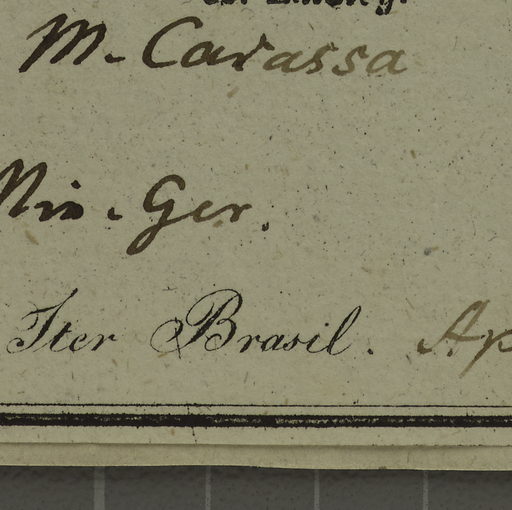 M. Carassa
Min. Ger.
Iter Brasil. Ap